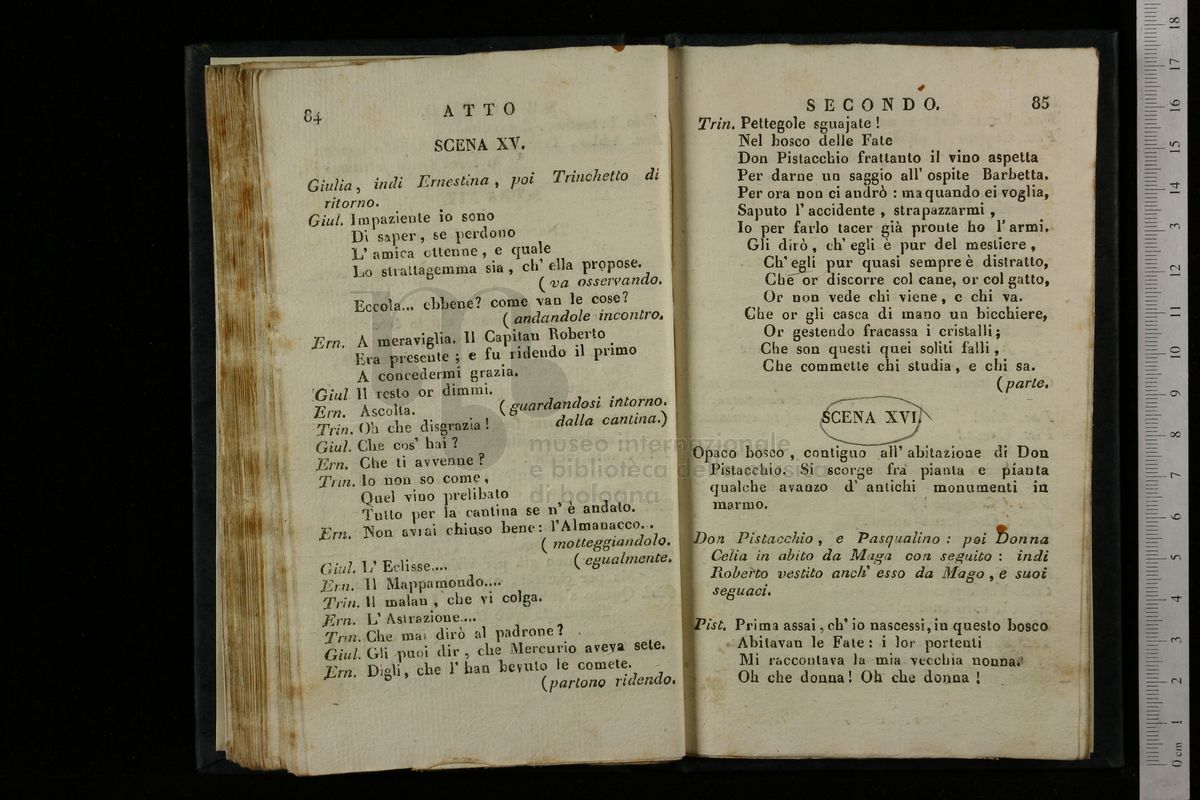 84
ATTO
SCENA XV.
Giulia, indi Ernestina, poi Trinchetto di
ritorno.
Giul. Impaziente io sono
Di saper, se perdono
L' amica ottenne, e quale
Lo strattagemma sia, ch' ella propose.
( va osservando.
Eccola... ebbene? come van le cose?
( andandole incontro.
Ern. A meraviglia. Il Capitan Roberto
Era presente ; e fu ridendo il primo
A concedermi grazia.
Giul Il resto or dimmi.
Ern. Ascolta. ( guardandosi intorno.
Trin. Oh che disgrazia! dalla cantina.)
Giul. Che cos' hai ?
Ern. Che ti avvenne ?
Trin. Io non so come,
Quel vino prelibato
Tutto per la cantina se n' è andato.
Ern. Non avrai chiuso bene: l'Almanacco..
( motteggiandolo.
Giul. L' Eclisse.... ( egualmente.
Ern. Il Mappamondo....
Trin. Il malan, che vi colga.
Ern. L' Astrazione....
Trin. Che mai dirò al padrone?
Giul. Gli puoi dir, che Mercurio aveva sete.
Ern. Digli, che l' han bevuto le comete.
(partono ridendo.
SECONDO. 85
Trin. Pettegole sguajate !
Nel bosco delle Fate
Don Pistacchio frattanto il vino aspetta
Per darne un saggio all' ospite Barbetta.
Per ora non ci andrò : ma quando ei voglia,
Saputo l' accidente, strapazzarmi,
Io per farlo tacer già pronte ho l' armi.
Gli dirò, ch' egli è pur del mestiere,
Ch' egli pur quasi sempre è distratto,
Che or discorre col cane, or col gatto,
Or non vede chi viene, e chi va.
Che or gli casca di mano un bicchiere,
Or gestendo fracassa i cristalli;
Che son questi quei soliti falli,
Che commette chi studia, e chi sa.
(parte.
SCENA XVI.
Opaco bosco, contiguo all' abitazione di Don
Pistacchio. Si scorge fra pianta e pianta
qualche avanzo d' antichi monumenti in
marmo.
Don Pistacchio, e Pasqualino : poi Donna
Celia in abito da Maga con seguito : indi
Roberto vestito anch' esso da Mago, e suoi
seguaci.
Pist. Prima assai, ch' io nascessi, in questo bosco
Abitavan le Fate : i lor portenti
Mi raccontava la mia vecchia nonna.
Oh che donna! Oh che donna !
museo internazionale
e biblioteca della musica
di bologna
0 cm 1 2 3 4 5 6 7 8 9 10 11 12 13 14 15 16 17 18